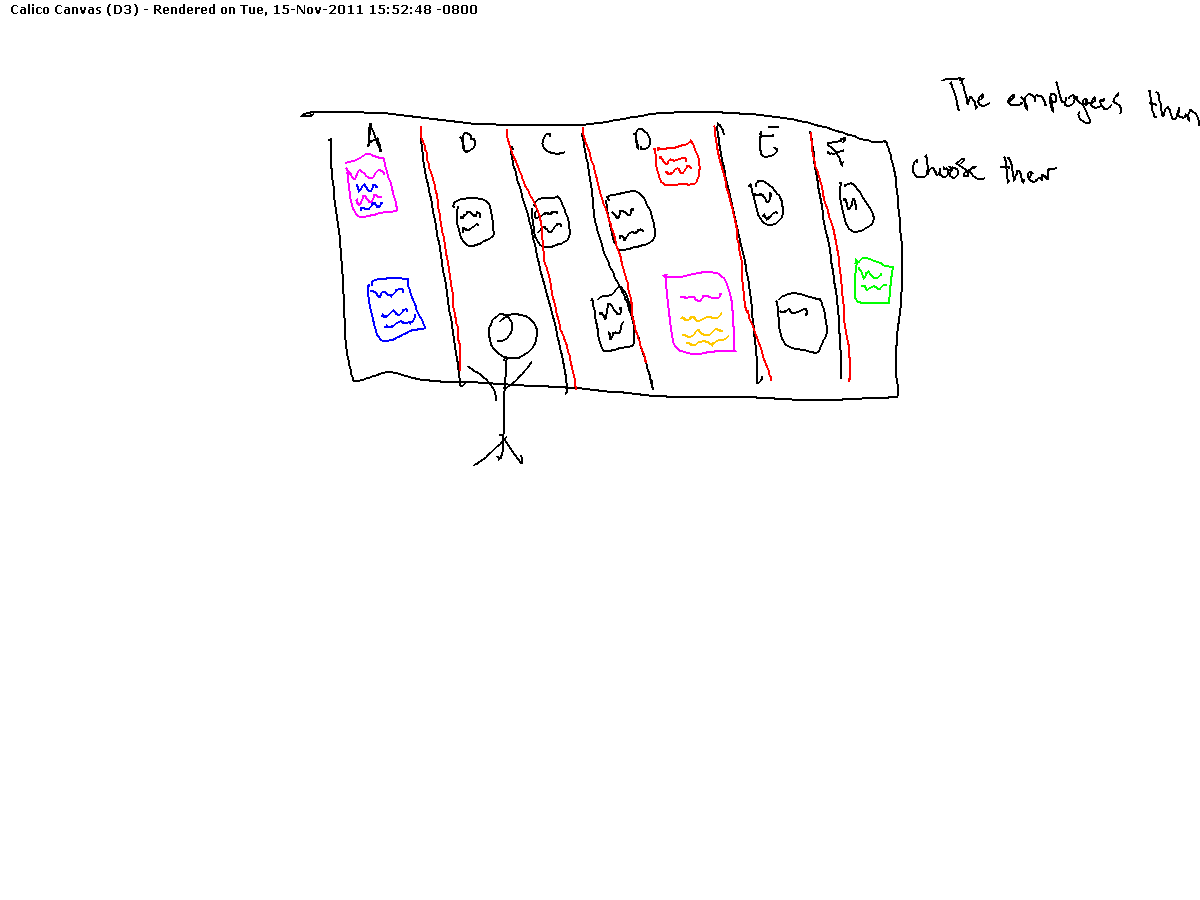 Calico Canvas (D3) - Rendered on Tue, 15-Nov-2011 15:52:48 -0800
The employees then
choose them
A B C D E F